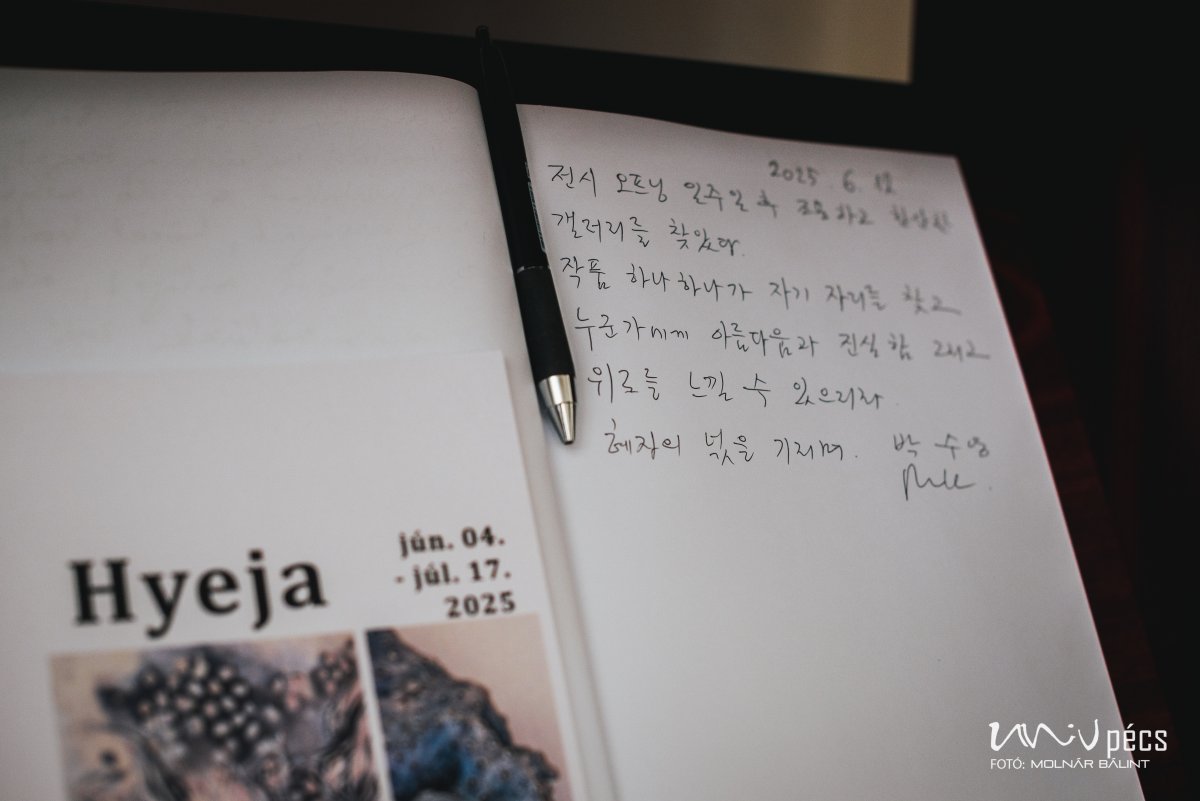 2025. 6. 12
전시 오프닝 일주일 후 조용하고 한산한
갤러리를 찾았다.
작품 하나하나가 자기 자리를 찾고
누군가에게 아름다움과 진실함 그리고
위로를 느낄 수 있으리라.
혜자의 넋을 기리며. 박수영
Hyeja
jún. 04.
- júl. 17.
2025
UNIV pécs
FOTÓ: MOLNÁR BÁLINT